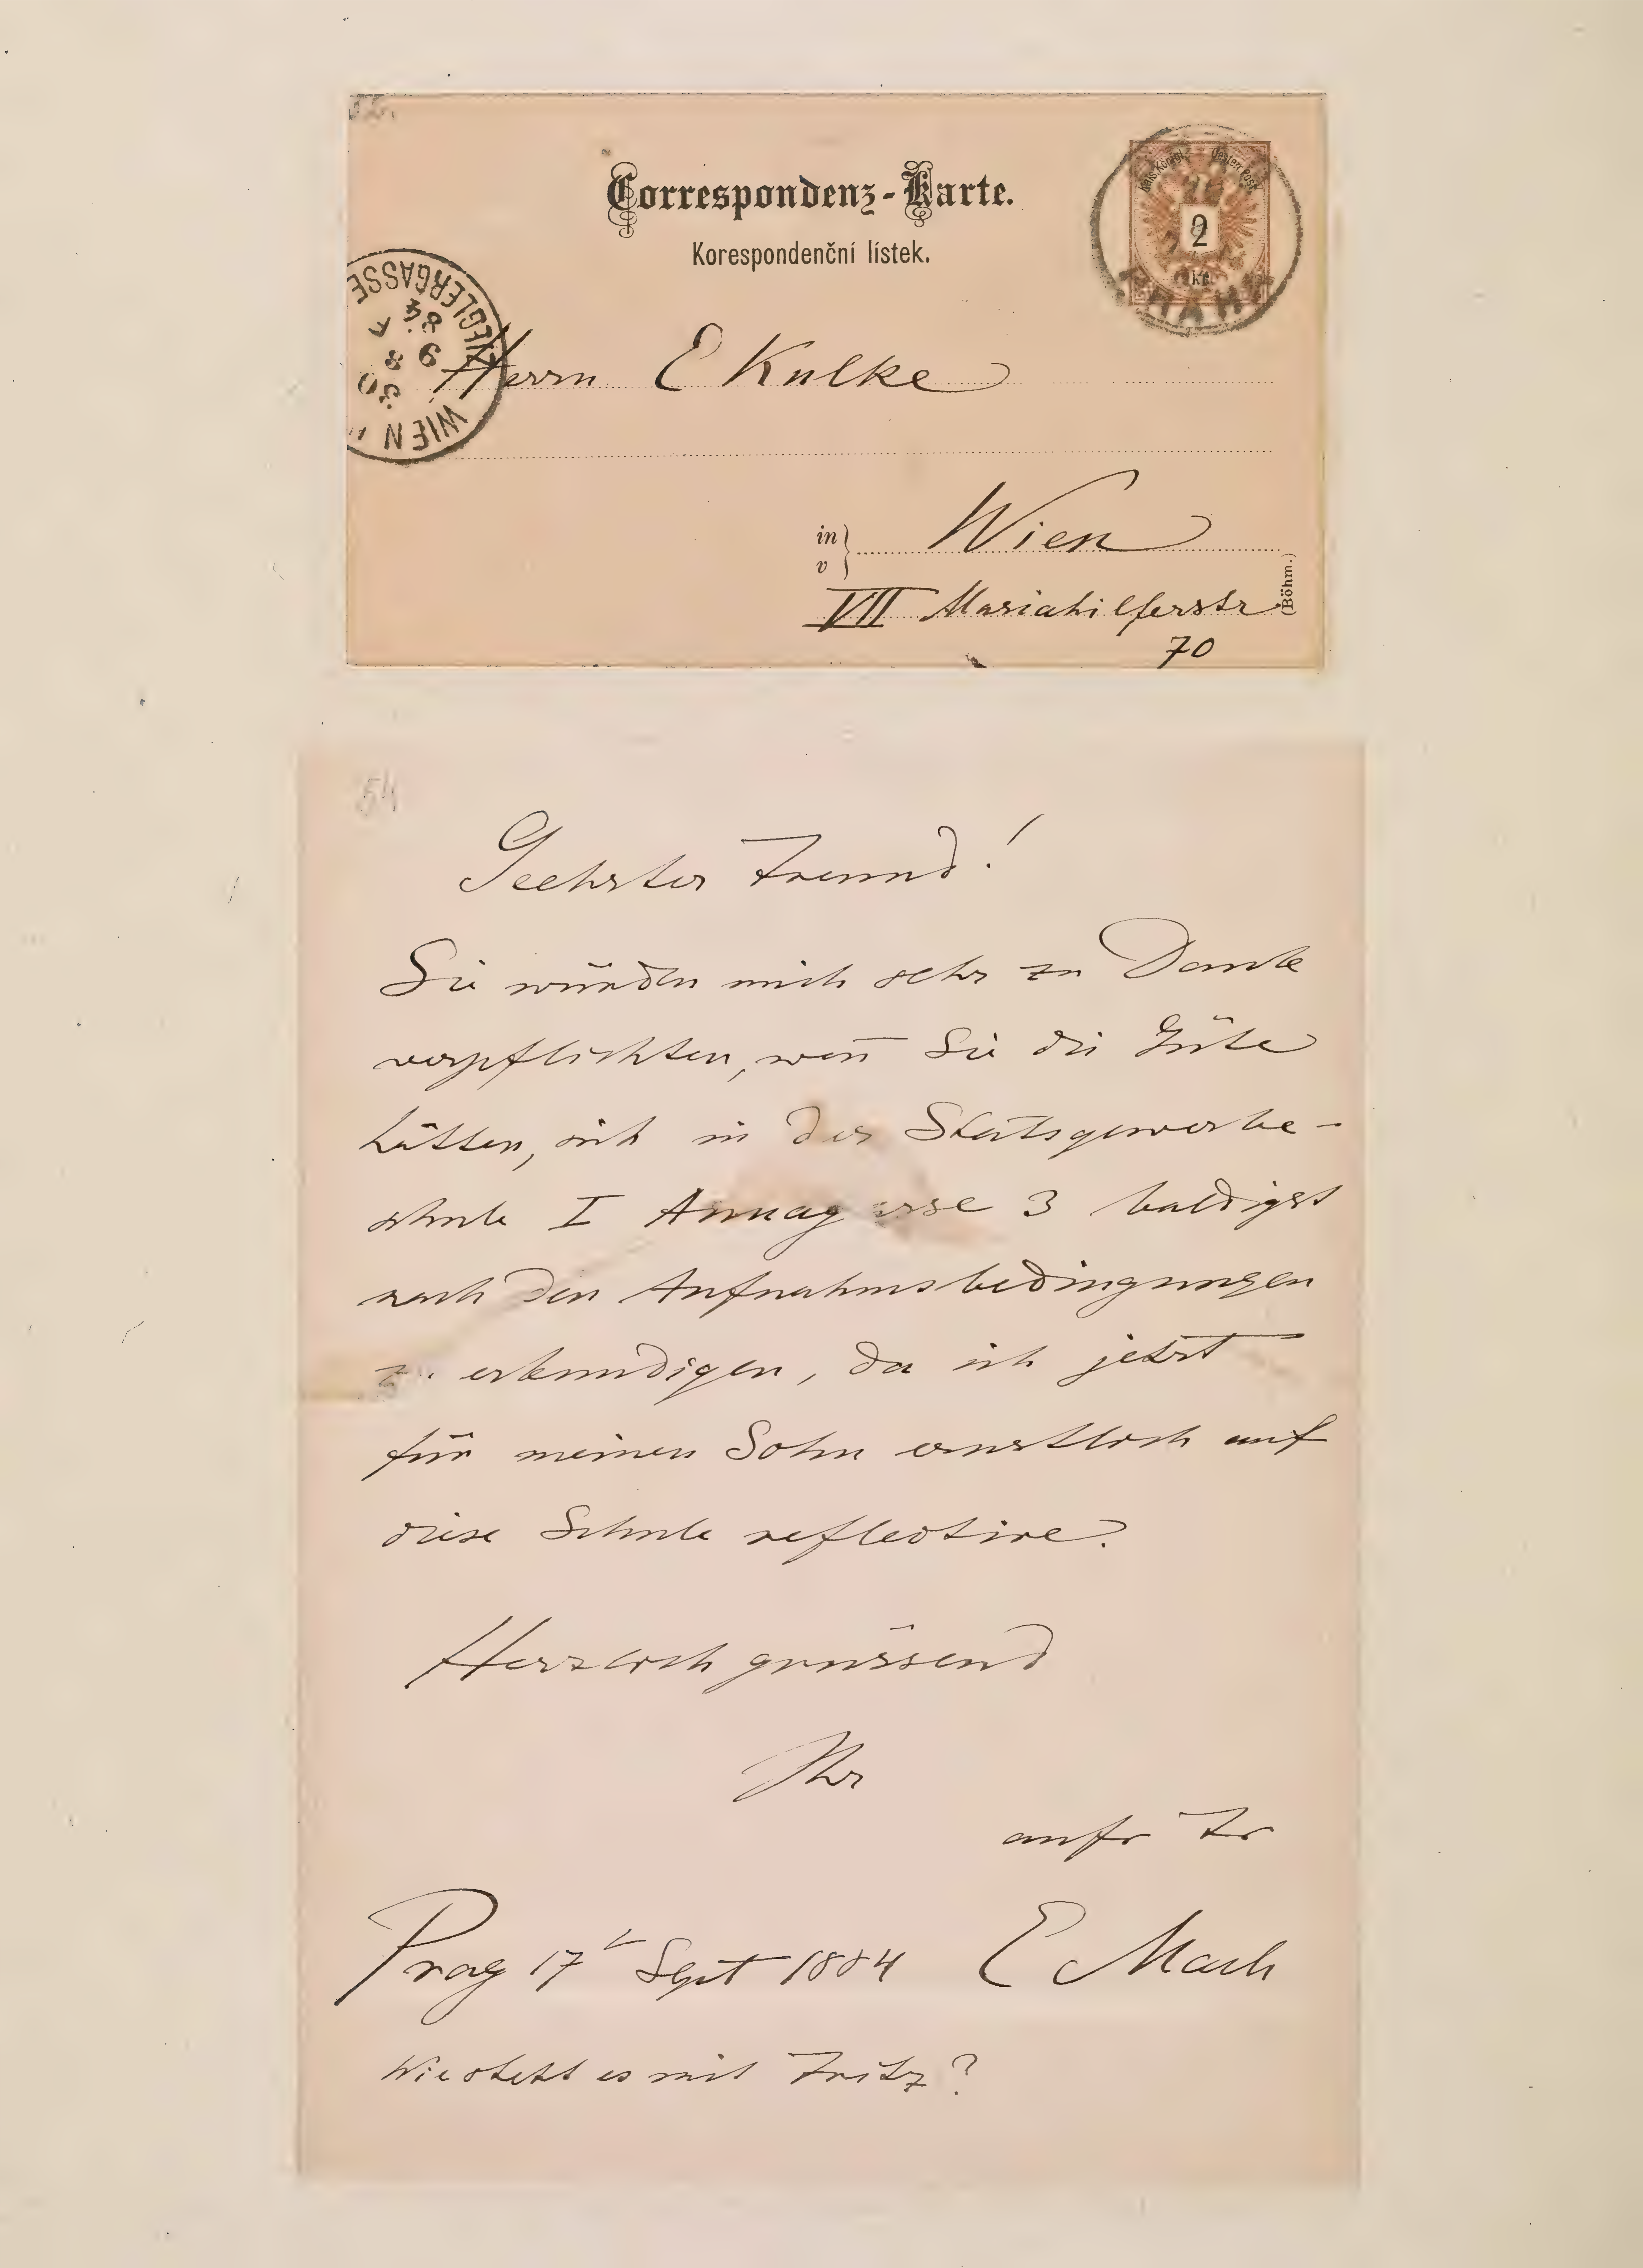 Correspondenz-Karte.
Korespondenční lístek.
Kais. Königl. Oesterr. Post
2
kr.
PRAHA
ZIEGLERGASSE
84
9 8
30
WIEN
Herrn E Kulke
in
v
Wien
VII Mariahilferstr
70
(Böhm.)
54
Geehrter Freund!
Sie würden mich sehr zu Danke
verpflichten, wen̄ Sie die Güte
hätten, sich in der Statsgewerbe-
schule I Annagasse 3 baldigst
nach den Aufnahmsbedingungen
zu erkundigen, da ich jetzt
für meinen Sohn ernstlich auf
diese Schule reflectire.
Herzlich grüssend
Ihr
aufr Fr
Prag 17t Sept 1884 E Mach
Wie steht es mit Fritz?